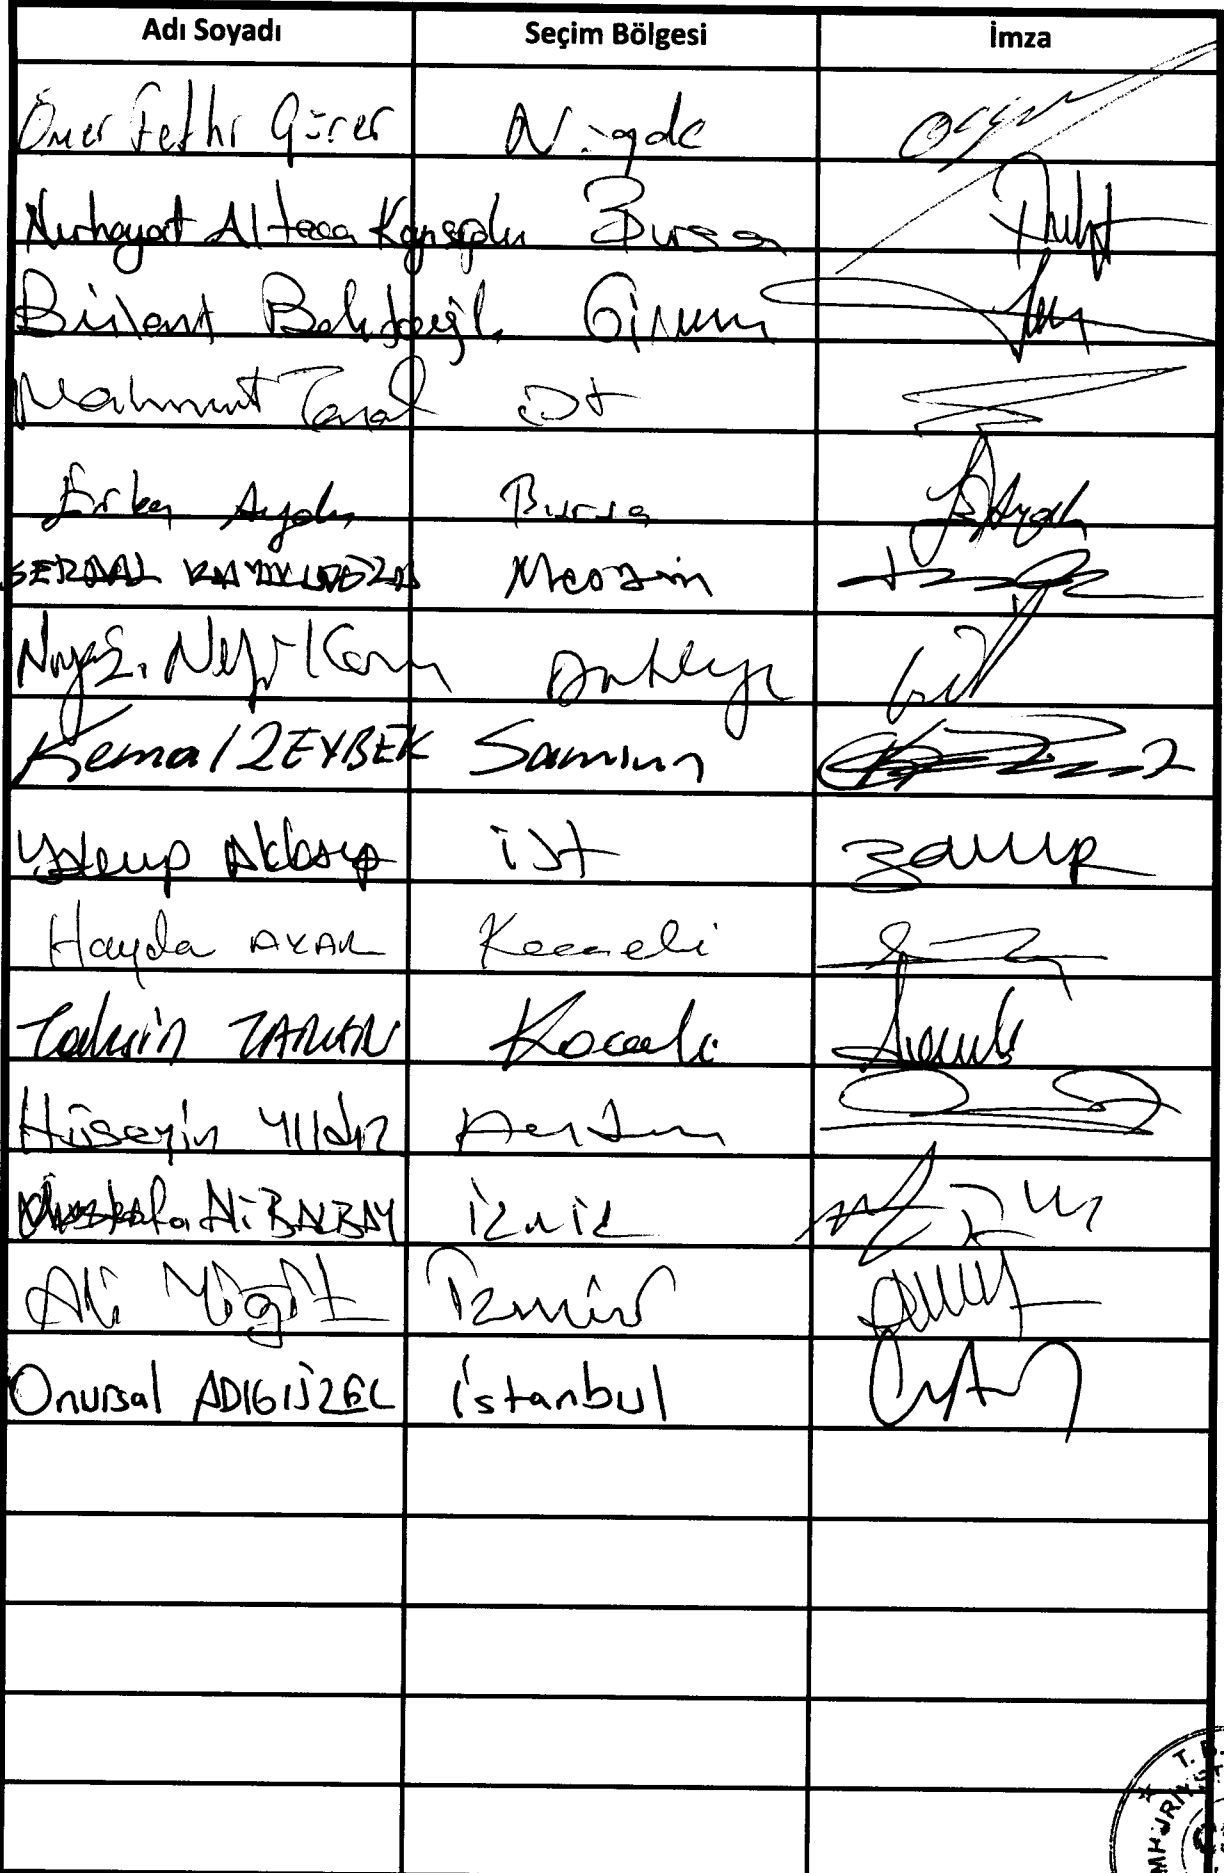 Adı Soyadı Seçim Bölgesi İmza
Ömer Fethi Gürer Niğde
Nurhayat Altaca Kayışoğlu Bursa
Bülent Giresun
Mahmut Tanal İst
Erkan Aydın Bursa
Mersin
Niyazi Nefi Kara Antalya
Kemal ZEYBEK Samsun
Yakup Akkaya İst
Haydar AKAR Kocaeli
Tahsin TARHAN Kocaeli
Hüseyin Yıldız Aydın
Mustafa Ali BALBAY İzmir
Ali Yiğit İzmir
Onursal ADIGÜZEL İstanbul
T.B.